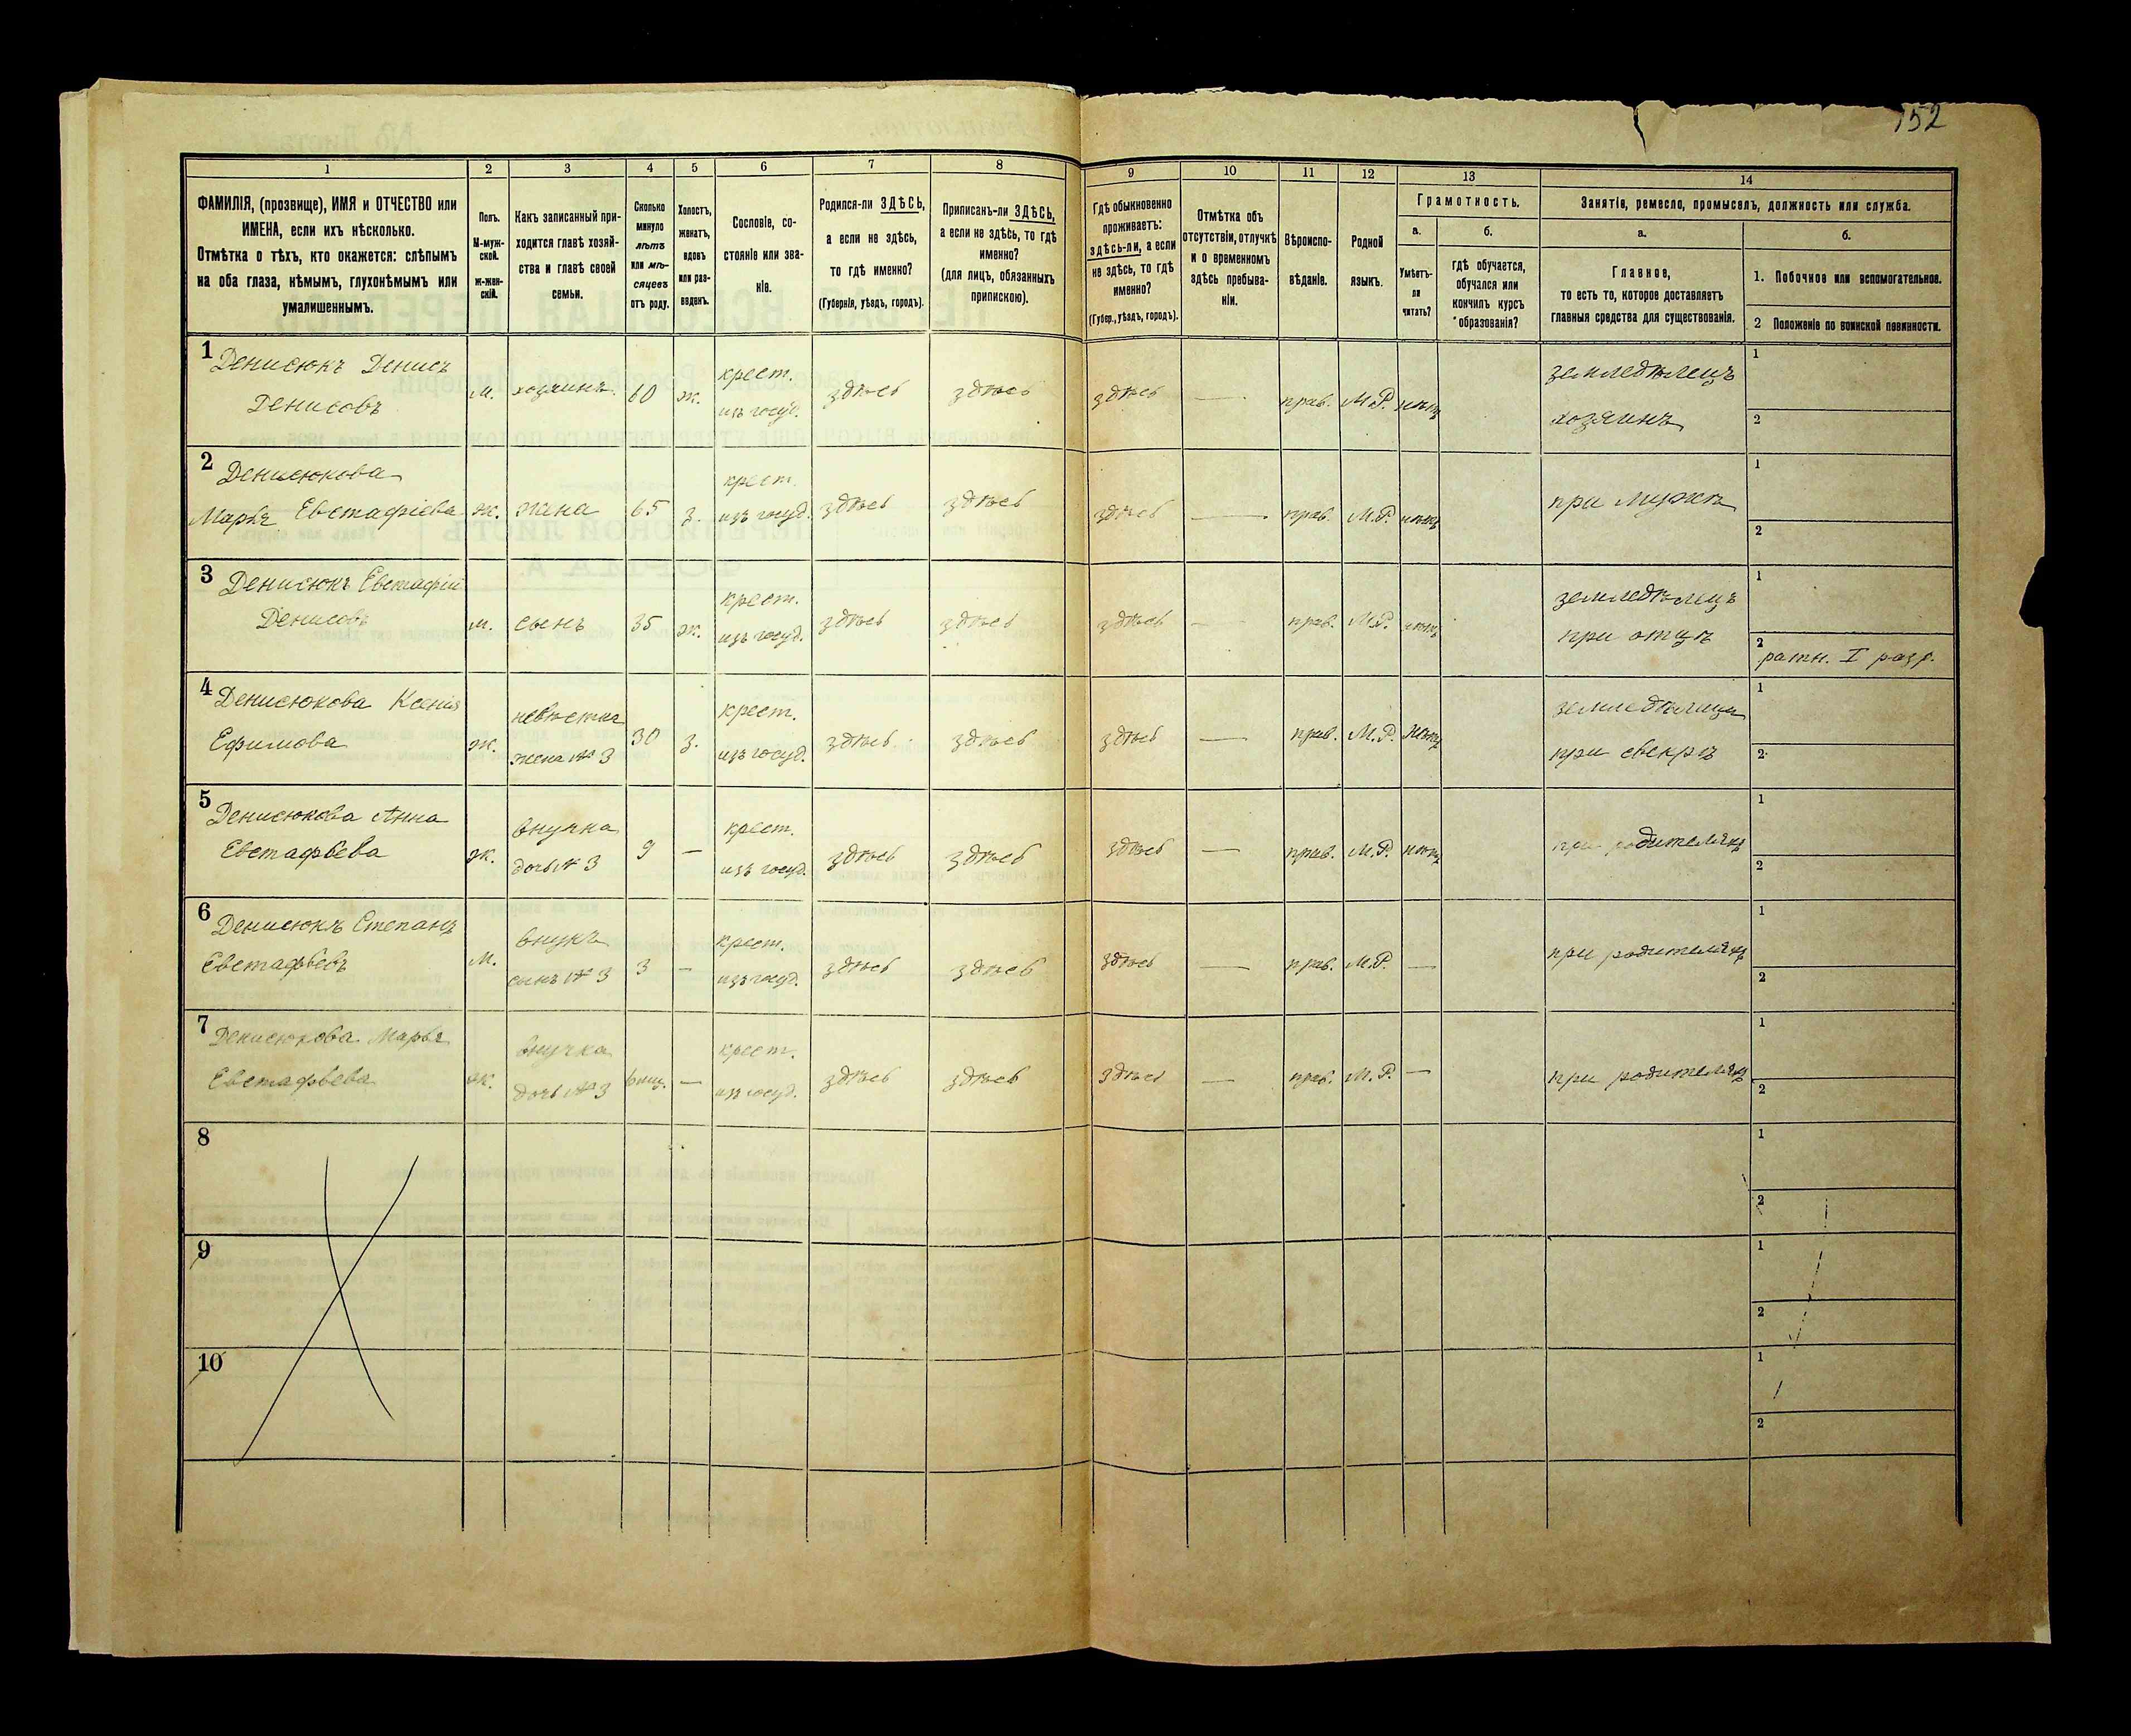 152
1 2 3 4 5 6 7 8 9 10 11 12 13 14
ФАМИЛІЯ, (прозвище), ИМЯ и ОТЧЕСТВО или
ИМЕНА, если ихъ нѣсколько.
Отмѣтка о тѣхъ, кто окажется: слѣпымъ
на оба глаза, нѣмымъ, глухонѣмымъ или
умалишеннымъ.
Полъ.
М-муж-
ской.
ж-жен-
скій.
Какъ записанный при-
ходится главѣ хозяй-
ства и главѣ своей
семьи.
Сколько
минуло
лѣтъ
или мѣ-
сяцевъ
отъ роду.
Холостъ,
женатъ,
вдовъ
или раз-
веденъ.
Сословіе, со-
стояніе или зва-
ніе.
Родился-ли ЗДѢСЬ,
а если не здѣсь,
то гдѣ именно?
(Губернія, уѣздъ, городъ).
Приписанъ-ли ЗДѢСЬ,
а если не здѣсь, то гдѣ
именно?
(для лицъ, обязанныхъ
припискою).
Гдѣ обыкновенно
проживаетъ:
здѣсь-ли, а если
не здѣсь, то гдѣ
именно?
(Губер., уѣздъ, городъ).
Отмѣтка объ
отсутствіи, отлучкѣ
и о временномъ
здѣсь пребыва-
ніи.
Вѣроиспо-
вѣданіе.
Родной
языкъ.
Грамотность.
а.
Умѣетъ-
ли
читать?
б.
гдѣ обучается,
обучался или
кончилъ курсъ
образованія?
Занятіе, ремесло, промыселъ, должность или служба.
а.
Главное,
то есть то, которое доставляетъ
главныя средства для существованія.
б.
1. Побочное или вспомогательное.
2 Положеніе по воинской повинности.
1 Денисюкъ Денисъ
Денисовъ
м. хозяинъ 60 ж. крест.
изъ госуд. здѣсь здѣсь здѣсь — прав. М.Р. нѣтъ
земледѣлецъ
хозяинъ
1
2
2 Денисюкова
Марья Евстафіева ж. жена 65 з. крест.
изъ госуд. здѣсь здѣсь здѣсь — прав. М.Р. нѣтъ
при мужѣ
1
2
3 Денисюкъ Евстафій
Денисовъ
м. сынъ 35 ж. крест.
изъ госуд. здѣсь здѣсь здѣсь — прав. М.Р. нѣтъ
земледѣлецъ
при отцѣ
1
2
ратн. I разр.
4 Денисюкова Ксенія
Ефимова
ж. невѣстка
жена № 3 30 з. крест.
изъ госуд. здѣсь здѣсь здѣсь — прав. М.Р. нѣтъ
земледѣлица
при свекрѣ
1
2
5 Денисюкова Анна
Евстафьева
ж. внучка
дочь № 3 9 — крест.
изъ госуд. здѣсь здѣсь здѣсь — прав. М.Р. нѣтъ
при родителяхъ
1
2
6 Денисюкъ Степанъ
Евстафьевъ
м. внукъ
сынъ № 3 3 — крест.
изъ госуд. здѣсь здѣсь здѣсь — прав. М.Р. —
при родителяхъ
1
2
7 Денисюкова Марья
Евстафьева
ж. внучка
дочь № 3 — крест.
изъ госуд. здѣсь здѣсь здѣсь — прав. М.Р. —
при родителяхъ
1
2
8
1
2
9
1
2
10
1
2